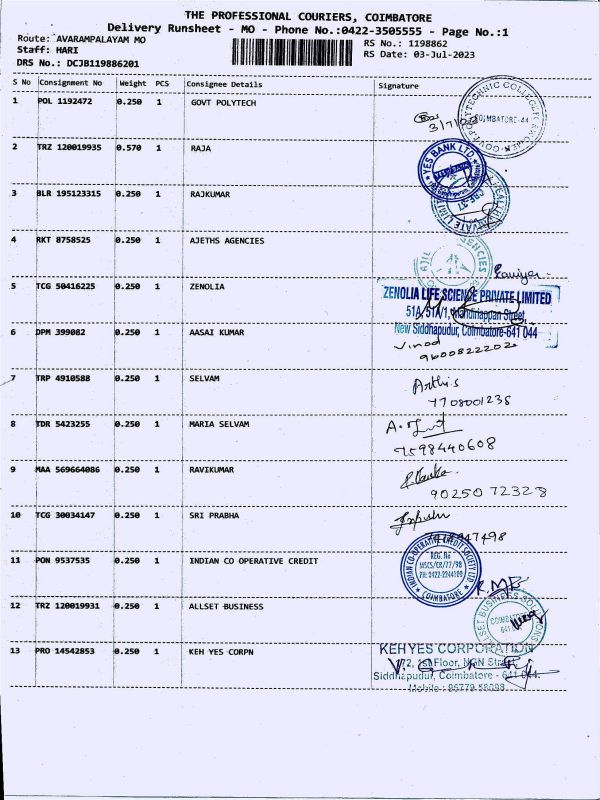 THE PROFESSIONAL COURIERS, COIMBATORE
Delivery Runsheet - MO - Phone No.:0422-3505555 - Page No.:1
Route: AVARAMPALAYAM MO
RS No.: 1198862
Staff: HARI
RS Date: 03-Jul-2023
DRS No.: DCJB119886201
S No Consignment No Weight PCS Consignee Details Signature
1 POL 1192472 0.250 1 GOVT POLYTECH
COIMBATORE-44
2 TRZ 120019935 0.570 1 RAJA
YES BANK LTD.
YES BANK
3 BLR 195123315 0.250 1 RAJKUMAR
4 RKT 8758525 0.250 1 AJETHS AGENCIES
5 TCG 50416225 0.250 1 ZENOLIA
ZENOLIA LIFE SCIENCE PRIVATE LIMITED
51A, 51A/1, Street,
New Siddhapudur, Coimbatore-641 044
6 DPM 399082 0.250 1 AASAI KUMAR
Vinod
7 TRP 4910588 0.250 1 SELVAM
Arthis
7708001238
8 TDR 5423255 0.250 1 MARIA SELVAM
7598440608
9 MAA 569664086 0.250 1 RAVIKUMAR
90250 72328
10 TCG 30034147 0.250 1 SRI PRABHA
11 PON 9537535 0.250 1 INDIAN CO OPERATIVE CREDIT
INDIAN CO-OPERATIVE CREDIT SOCIETY LTD
REG. No
MSCS/CR/77/98
PH: 0422-2244109
COIMBATORE
12 TRZ 120019931 0.250 1 ALLSET BUSINESS
ALLSET BUSINESS SOLUTIONS
13 PRO 14542853 0.250 1 KEH YES CORPN
KEH YES CORPORATION
Floor, NGN Street
Siddhapudur, Coimbatore - 641 044.
Mobile : 86779 58898